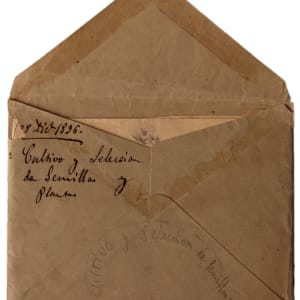 28 Dic 1896.
Cultivo y Seleccion
de Semillas y
Plantas
Cultivo y Seleccion de Semillas